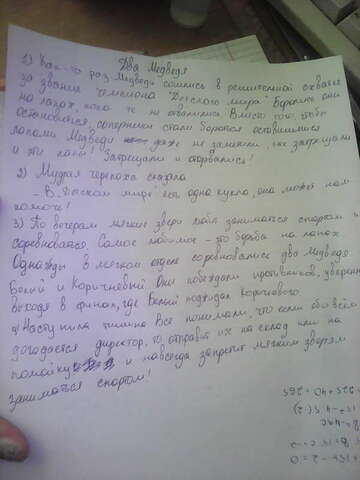 Два Медведя
1) Как-то раз Медведи сошлись в решительной схватке
за звание чемпиона "Детского мира" Боролись они
на лапах, пока те не отвалились Вместо того, чтобы
остановится, соперники стали бороться оставшимися
лапами Медведи даже не заметили, как затрещали
и эти лапы! Затрещали и оторвались!
2) Мудрая черепаха сказала
- В Детском мире есть одна кукла, она может нам
помочь!
3) По вечерам мягкие звери любят заниматься спортом и
соревноваться. Самое любимое - это борьба на лапах
Однажды в мягком отделе соревновались два Медведя
Белый и Коричневый Они побеждали противников, уверенно
выходя в финал, где Белый поджидал Коричневого
4) Наступила тишина Все понимали, что если обо всём
догадается директор, то отправит их на склад или на
помойку и навсегда запретит мягким зверям
заниматся спортом!